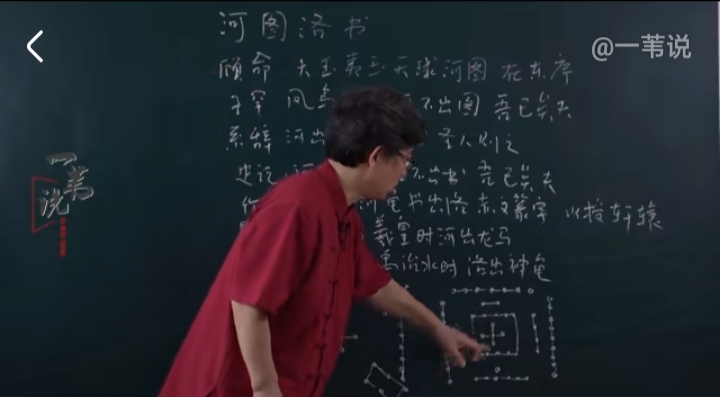 河图洛书
@一苇说
顾命 大玉 夷玉 天球 河图 在东序
子罕 凤鸟 不出图 吾已矣夫
系辞 河出 圣人则之
史记 不出书 吾已矣夫
龟书出洛 赤文篆字 以授轩辕
羲皇时河出龙马
禹治水时 洛出神龟
一苇
说